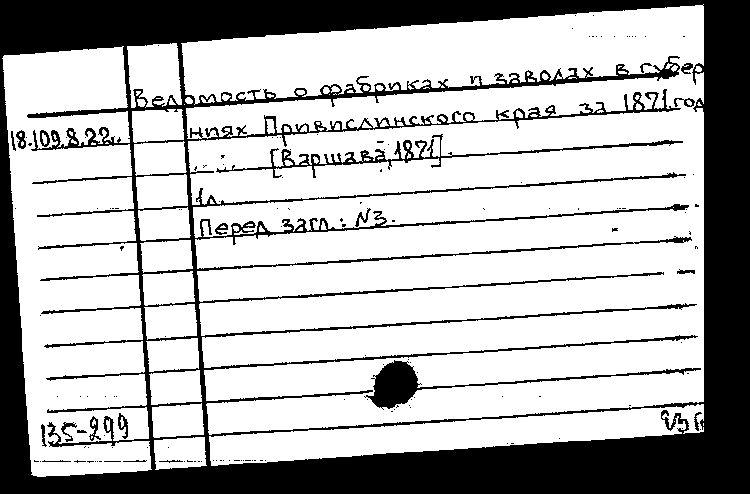 Ведомость о фабриках и заводах в губер
18.109.8.22.
ниях Привислинского края за 1871 год
[Варшава, 1871].
1л.
Перед загл.: N3.
135-299